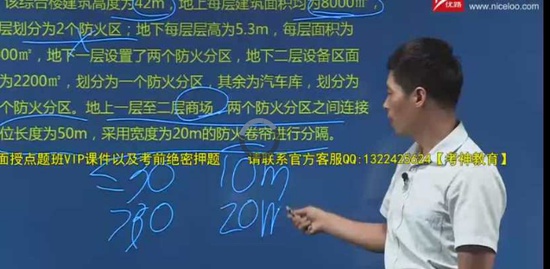 优路
www.niceloo.com
该综合楼建筑高度为42m,地上每层建筑面积均为8000㎡,
层划分为2个防火区;地下每层层高为5.3m,每层面积为
00㎡,地下一层设置了两个防火分区,地下二层设备区面
为2200㎡,划分为一个防火分区,其余为汽车库,划分为
个防火分区。地上一层至二层商场,两个防火分区之间连接
位长度为50m,采用宽度为20m的防火卷帘进行分隔。
面授点题班VIP课件以及考前绝密押题 请联系官方客服QQ:1322428624【考神教育】
≤30 10m
>30 20m